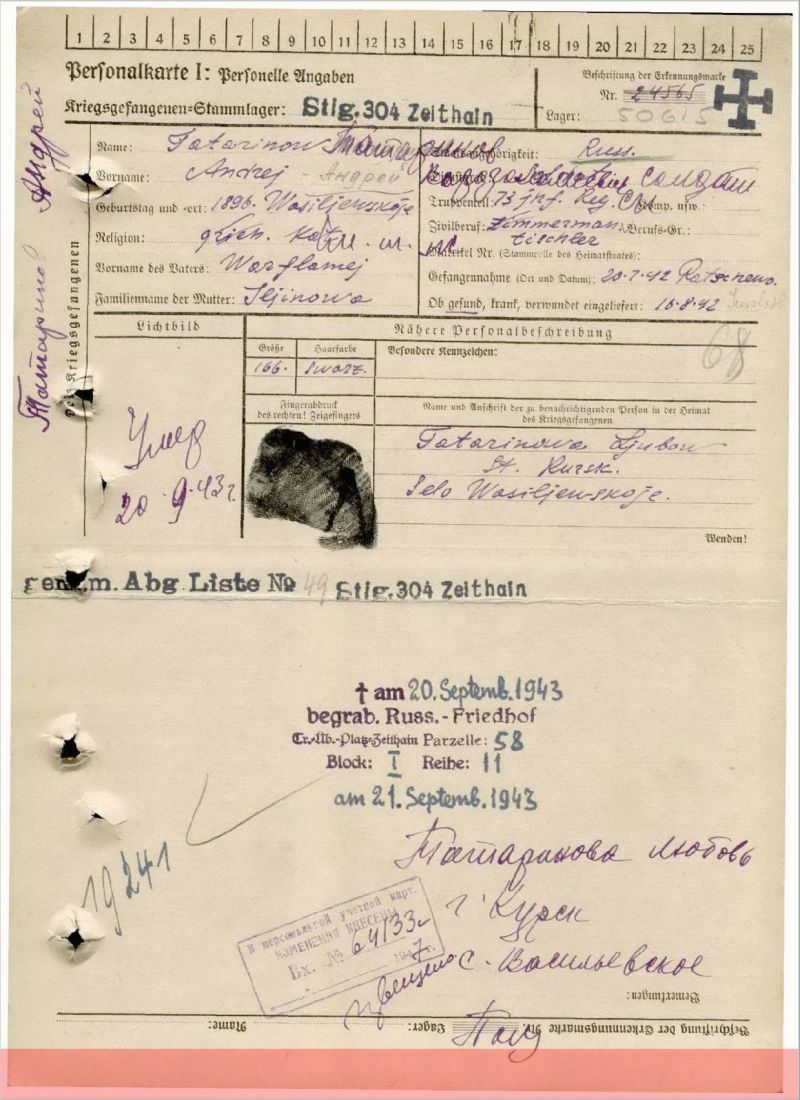 1 2 3 4 5 6 7 8 9 10 11 12 13 14 15 16 17 18 19 20 21 22 23 24 25
Personalkarte I: Personelle Angaben
Beschriftung der Erkennungsmarke
Nr. 24565
Kriegsgefangenen-Stammlager: Stlg. 304 Zeithain
Lager: 50615
Татаринов Андрей
des Kriegsgefangenen
Name: Tatarinow Татаринов
Staatsangehörigkeit: Russ.
Vorname: Andrej - Андрей
солдат
Geburtstag und -ort: 1896. Wasiljewskoje
Truppenteil: 73 Inf. Reg. Komp. usw.:
Religion: griech. kat.
Zivilberuf: Zimmerman, Berufs-Gr.:
tischler
Matrikel Nr. (Stammrolle des Heimatstaates):
Vorname des Vaters: Warflamej
Gefangennahme (Ort und Datum): 20.7.42
Familienname der Mutter: Iljinowa
Ob gesund, krank, verwundet eingeliefert: 16.8.42
Lichtbild
Nähere Personalbeschreibung
Größe Haarfarbe Besondere Kennzeichen:
166. swarz.
68
Fingerabdruck
des rechten! Zeigefingers
Name und Anschrift der zu benachrichtigenden Person in der Heimat
des Kriegsgefangenen
Tatarinowa Ljubow
St. Kursk.
Selo Wasiljewskoje.
Умер
20.9.43г.
Wenden!
gem. Abg. Liste No 49 Stlg. 304 Zeithain
† am 20. Septemb. 1943
begrab. Russ.-Friedhof
Tr.-Üb.-Platz-Zeithain Parzelle: 58
Block: I Reihe: 11
am 21. Septemb. 1943
19241
Татаринова Любовь
г. Курск
с. Васильевское
В персональной учетной карт.
ИЗМЕНЕНИЯ ВНЕСЕНЫ
Вх. № 64133
1947.
Bemerkungen:
Beschriftung der Erkennungsmarke Nr.
Lager:
Name: